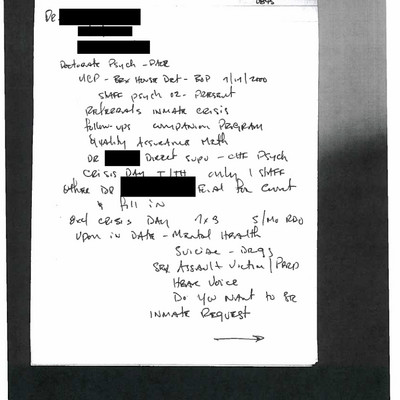 De.
Doctorate Psych -
UCP - Bex House Det - BOP 1/11/2000
staff psych 02 - Present
Referrals inmate crisis
follow-ups companion Program
Quality Assurance Math
DR Direct supv - Chf Psych
Crisis Day T/TH only 1 staff
other DR for court
& fill in
crisis DAY 7x3 S/Mo RDO
upon in Date - Mental Health
Suicide - Drgs
Sex Assault Victim / Pred
Hear Voice
Do you want to
inmate Request